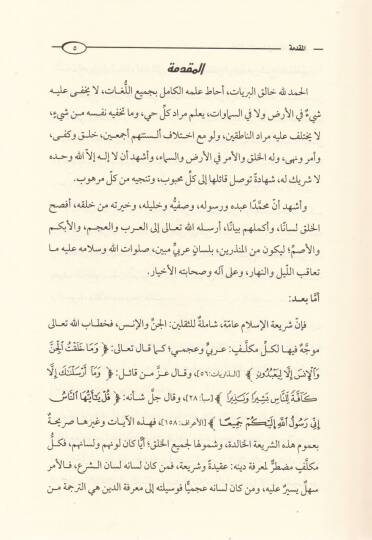 المقدمة
٥
المقدمة
الحمد لله خالق البريات، أحاط علمه الكامل بجميع اللُّغات، لا يخفى عليه
شيءٌ في الأرض ولا في السماوات، يعلم مراد كلِّ حي، وما تخفيه نفسه من شيءٍ،
لا يختلف عليه مراد الناطقين، ولو مع اختلاف ألسنتهم أجمعين، خلق وكفى،
وأمر ونهى، وله الخلق والأمر في الأرض والسماء، وأشهد أن لا إله إلَّا الله وحده
لا شريك له، شهادةً توصل قائلها إلى كلِّ محبوب، وتنجيه من كلِّ مرهوب.
وأشهد أنَّ محمَّدًا عبده ورسوله، وصفيُّه وخليله، وخيرته من خلقه، أفصح
الخلق لسانًا، وأكملهم بيانًا، أرسله الله تعالى إلى العرب والعجم، والأبكم
والأصمِّ؛ ليكون من المنذرين، بلسان عربيٍّ مبين، صلوات الله وسلامه عليه ما
تعاقب اللَّيل والنهار، وعلى آله وصحابته الأخيار.
أمَّا بعد:
فإنَّ شريعة الإسلام عامَّة، شاملةٌ للثقلين: الجنِّ والإنس، فخطاب الله تعالى
موجَّه فيها لكلِّ مكلَّف: عربيٍّ وعجمي؛ كما قال تعالى: ﴿ وَمَا خَلَقْتُ ٱلْجِنَّ
وَٱلْإِنسَ إِلَّا لِيَعْبُدُونِ ﴾ [الذاريات:٥٦]، وقال عزَّ من قائل: ﴿ وَمَآ أَرْسَلْنَٰكَ إِلَّا
كَآفَّةً لِّلنَّاسِ بَشِيرًا وَنَذِيرًا ﴾ [سبأ:٢٨]، وقال جلَّ شأنه: ﴿ قُلْ يَٰٓأَيُّهَا ٱلنَّاسُ
إِنِّى رَسُولُ ٱللَّهِ إِلَيْكُمْ جَمِيعًا ﴾ [الأعراف:١٥٨]، فهذه الآيات وغيرها صريحةٌ
بعموم هذه الشريعة الخالدة، وشمولها لجميع الخلق؛ أيًّا كان لونهم ولسانهم، فكلُّ
مكلَّف مضطرٌّ لمعرفة دينه: عقيدةً وشريعة، فمن كان لسانه لسان الشرع، فالأمر
سهلٌ يسيرٌ عليه، ومن كان لسانه عجميًّا فوسيلته إلى معرفة الدين هي الترجمة من